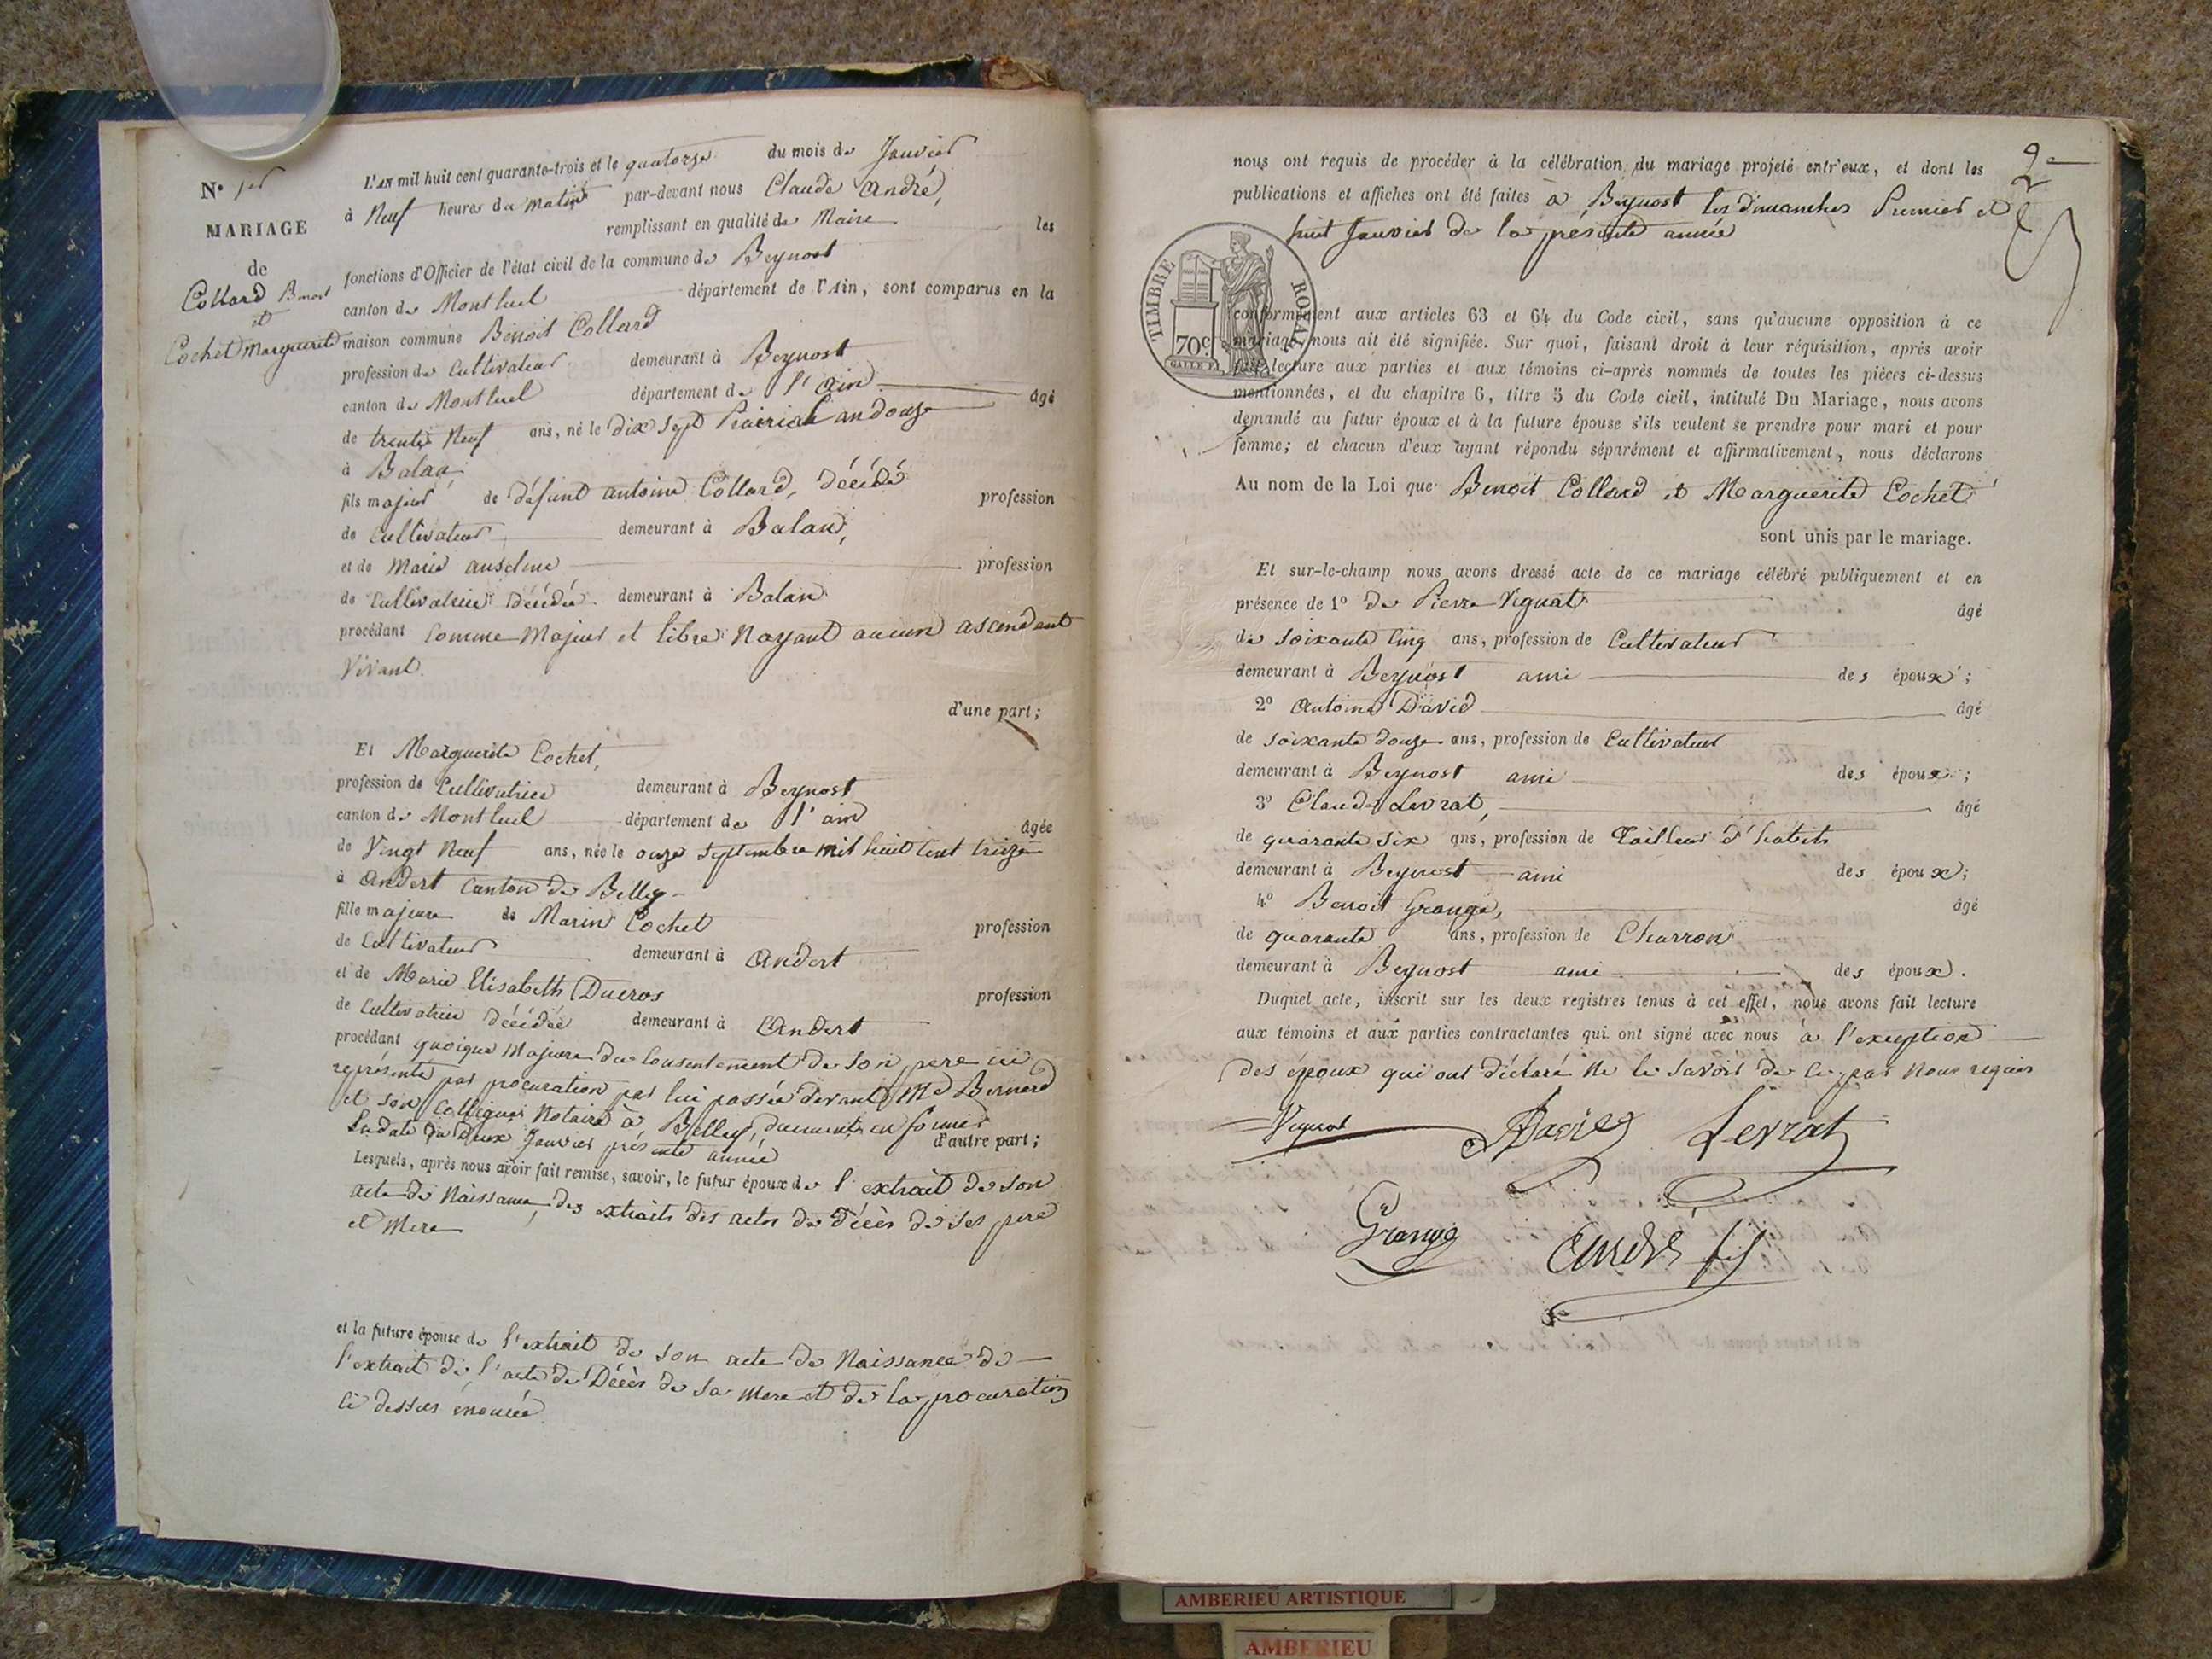 N° 1er
MARIAGE
de
Collard Benoit
et
Cochet Marguerite
L'an mil huit cent quarante-trois et le quatorze du mois de Janvier
à Neuf heures du matin par-devant nous Claude André,
remplissant en qualité de Maire les
fonctions d'Officier de l'état civil de la commune de Beynost
canton de Montluel département de l'Ain, sont comparus en la
maison commune Benoit Collard
profession de Cultivateur demeurant à Beynost
canton de Montluel département de l'ain âgé
de trente Neuf ans, né le dix sept Prairial an douze
à Balan
fils majeur de défunt antoine Collard, décédé profession
de Cultivateur demeurant à Balan,
et de Marie anselme profession
de Cultivatrice décédée demeurant à Balan
procédant comme Majeur et libre Nayant aucun ascendant
vivant.
d'une part;
Et Marguerite Cochet,
profession de Cultivatrice demeurant à Beynost
canton de Montluel département de l'ain âgée
de Vingt Neuf ans, née le onze Septembre mil huit cent treize
à Andert Canton de Belley
fille majeure de Marin Cochet profession
de Cultivateur demeurant à Andert
et de Marie Elisabeth Ducros profession
de Cultivatrice décédée demeurant à Andert
procédant quoique Majeure du Consentement de son pere ici
représenté par procuration par lui passée devant Me Bernard
et son Collègue Notaire à Belley, en
date du Deux Janvier présente année d'autre part;
Lesquels, après nous avoir fait remise, savoir, le futur époux de l'extrait de son
acte de Naissance, des extraits des actes de décès de ses pere
et Mere
et la future épouse de l'extrait de son acte de Naissance de
l'extrait de l'acte de Décès de sa Mere et de la procuration
ci dessus énoncée
2e
nous ont requis de procéder à la célébration du mariage projeté entr'eux, et dont les
publications et affiches ont été faites à Beynost les dimanches Premier et
huit Janvier de la présente année
TIMBRE ROYAL
70c
conformément aux articles 63 et 64 du Code civil, sans qu'aucune opposition à ce
mariage nous ait été signifiée. Sur quoi, faisant droit à leur réquisition, après avoir
fait lecture aux parties et aux témoins ci-après nommés de toutes les pièces ci-dessus
mentionnées, et du chapitre 6, titre 5 du Code civil, intitulé Du Mariage, nous avons
demandé au futur époux et à la future épouse s'ils veulent se prendre pour mari et pour
femme; et chacun d'eux ayant répondu séparément et affirmativement, nous déclarons
Au nom de la Loi que Benoit Collard et Marguerite Cochet
sont unis par le mariage.
Et sur-le-champ nous avons dressé acte de ce mariage célébré publiquement et en
présence de 1° de Pierre Vignat âgé
de soixante cinq ans, profession de Cultivateur
demeurant à Beynost ami des époux;
2° Antoine David âgé
de soixante douze ans, profession de Cultivateur
demeurant à Beynost ami des époux;
3° Claude Levrat, âgé
de quarante six ans, profession de Tailleur d'habits
demeurant à Beynost ami des époux;
4° Benoit Grange, âgé
de quarante ans, profession de Charron
demeurant à Beynost ami des époux.
Duquel acte, inscrit sur les deux registres tenus à cet effet, nous avons fait lecture
aux témoins et aux parties contractantes qui ont signé avec nous à l'exception
des époux qui ont déclaré Ne le savoir de ce par Nous requis
Vignat David Levrat
Grange André
AMBERIEU ARTISTIQUE
AMBERIEU